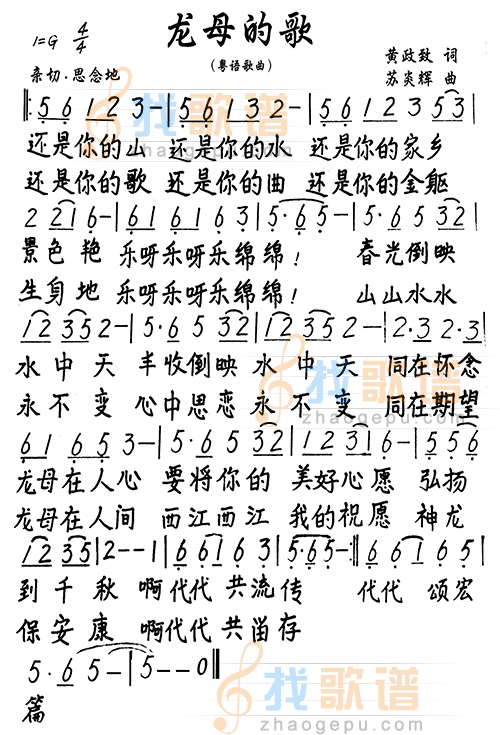 龙母的歌
1=G 4/4
(粤语歌曲)
黄政致 词
苏炎辉 曲
亲切.思念地
‖: 5 6 1 2 3 - | 5 6 1 3 2 - | 5 6 1 2 3 5 3 |
还是你的山 还是你的水 还是你的家乡
还是你的歌 还是你的曲 还是你的金躯
2 2 1 6 - | 6 1 6 1 6 3 | 5· 6 5 - | 5· 6 5 3 2 |
景色艳 乐呀乐呀乐绵绵! 春光倒映
生身地 乐呀乐呀乐绵绵! 山山水水
1 2 3 5 2 - | 5· 6 5 3 2 | 1 2 3 5 2 - | 2· 3 2· 3 |
水中天 丰收倒映水中天 同在怀念
永不变 心中思恋永不变 同在期望
6 1 6 5 3 - | 5· 6 5 3 2 | 1 2 2 3 1 6 - | 5 5 6 |
龙母在人心 要将你的 美好心愿 弘扬
龙母在人间 西江西江 我的祝愿 神龙
1 2 3 5 | 2 - - 1 | 6 6 1 6 3 | 5· 6 5 - :‖ 6 6 1 6 5 |
到千秋 啊代代共流传 代代颂宏
保安康 啊代代共留存
5· 6 5 - | 5 - - 0 ‖
篇
找歌谱
zhaogepu.com
找歌谱
zhaogepu.com
找歌谱
zhaogepu.com